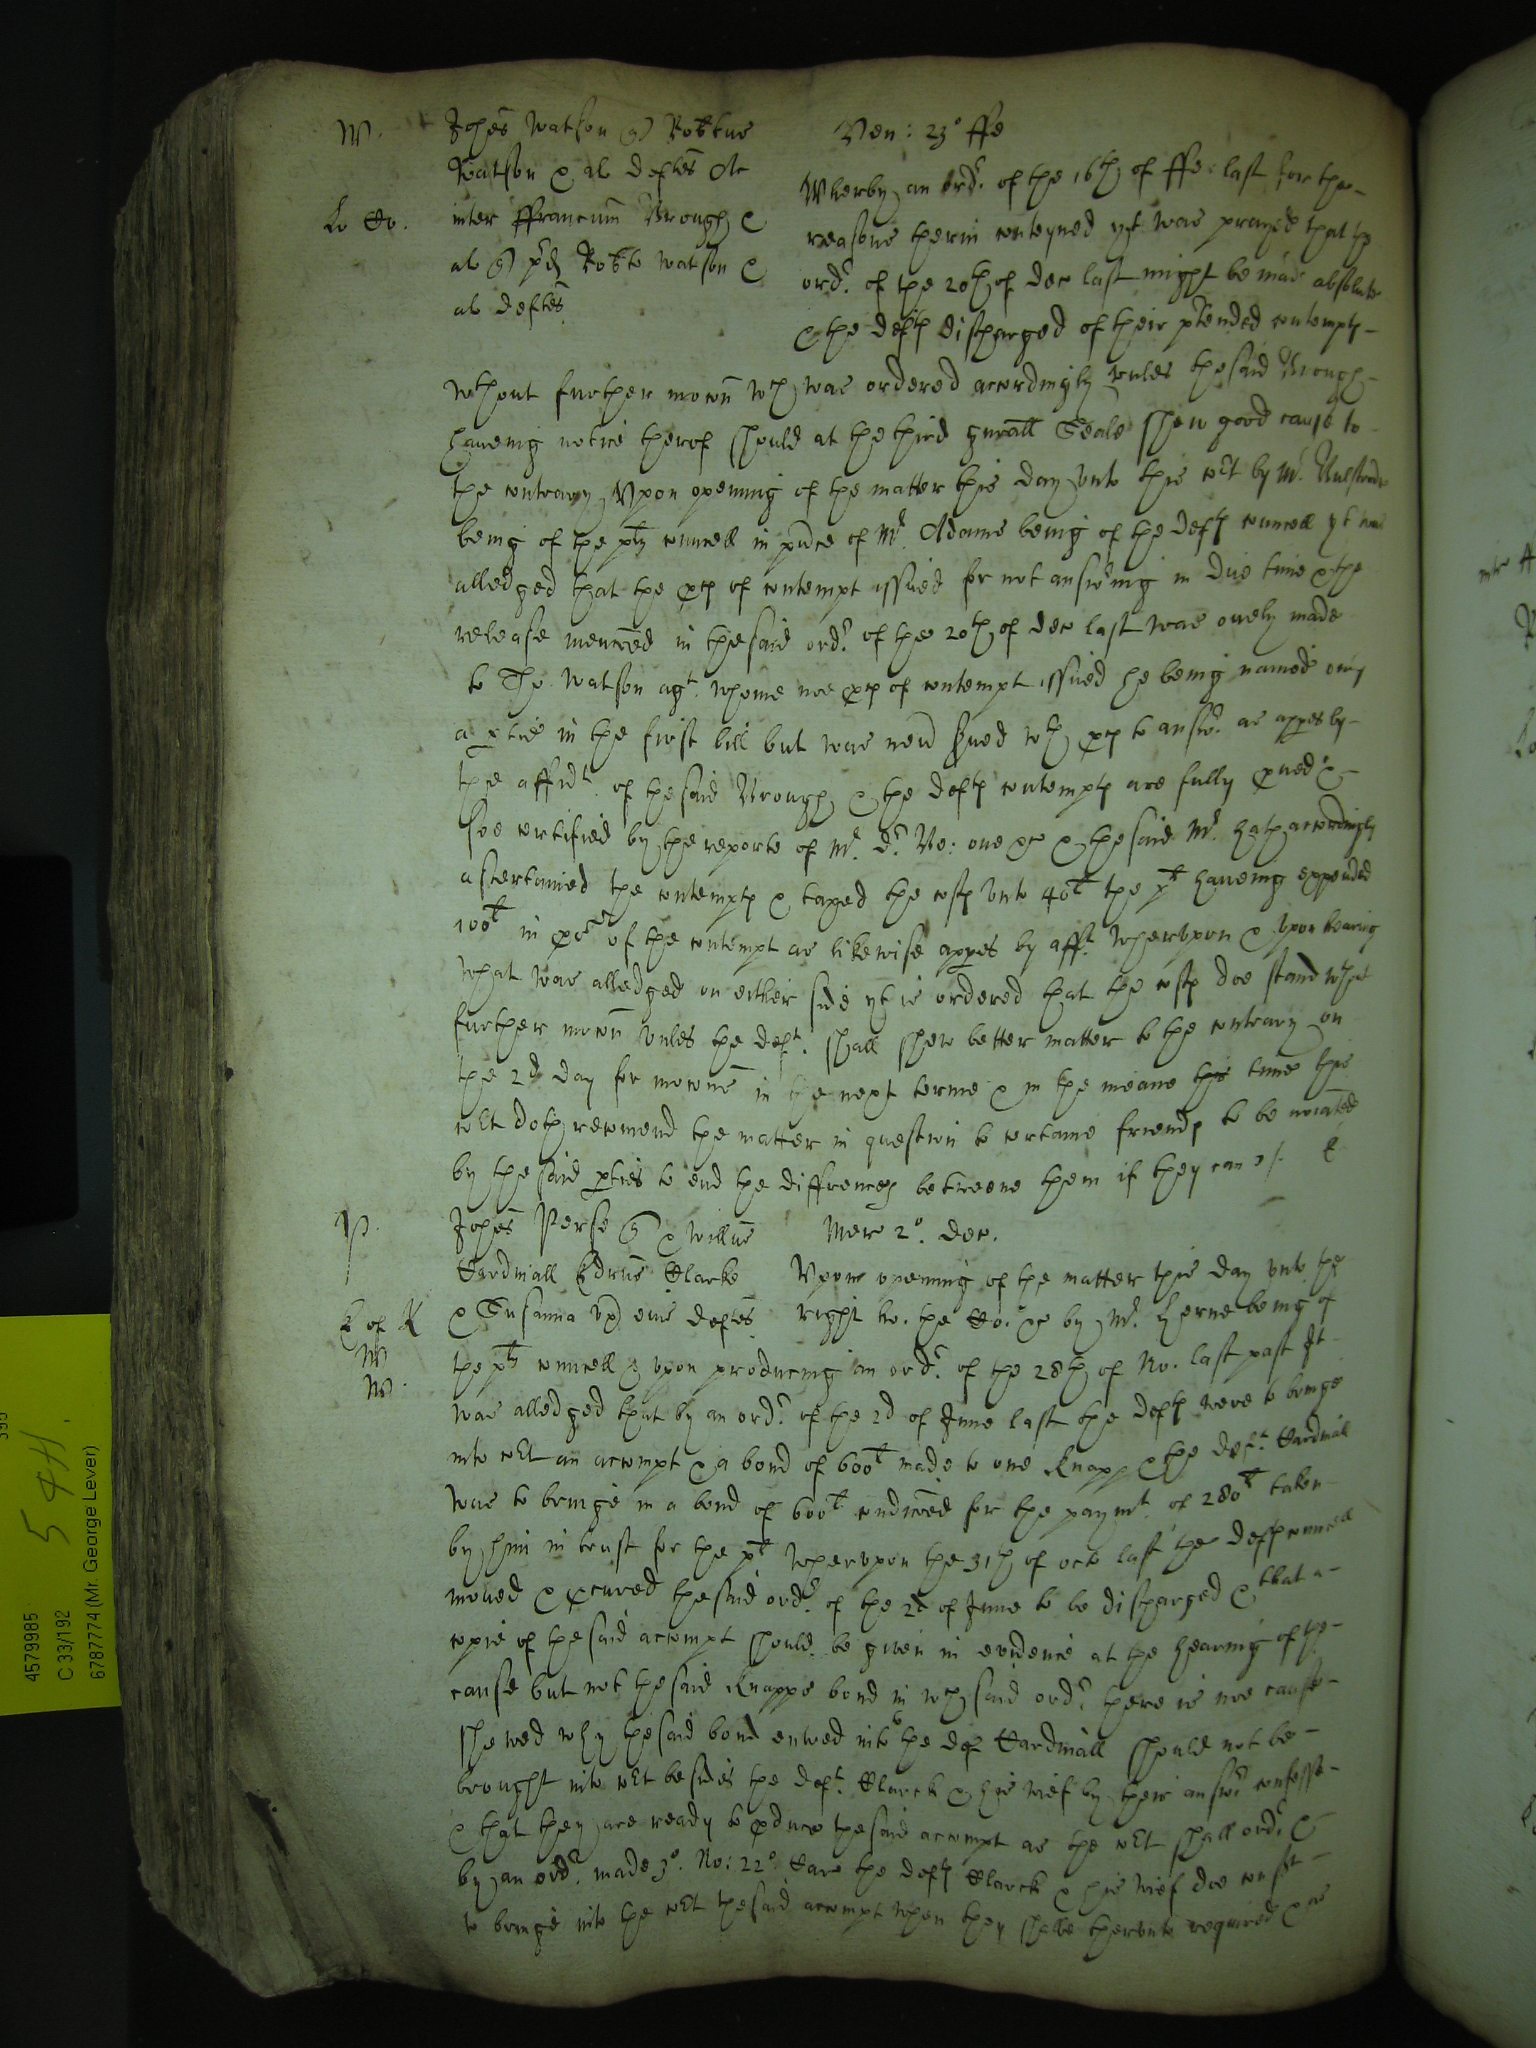 W. Johes Watson q Robtus Ven: 23° ffe
Watson & al deftes &c Wherby an ord^r. of the 16th of ffe: last for the
Lo Co. inter ffrancum Brough & reasons therin conteyned yt was prayed that the
al q pred Robte Watson & ord^r. of the 20th of dec last might be made absolute
al deftes & the deftes discharged of their p^rtended contempts
wthout further mocon wch was ordered accordingly vnles the said Brough
haueing notice therof should at the third gnrall Seale shew good cause to
the contrary, Vpon opening of the matter this day vnto this co^rt by M^r.
being of the plts councell in p^rnce of M^r. Adams being of the defts councell yt was
alledged that the pces of contempt issued for not answ^ring in due time & the
release menconed in the said ord^r. of the 20th of dec last was onely made
to Tho. Watson agt. whome noe pces of contempt issued he being named only
a ptie in the first bill but was neu^r sued wth pces to answ^r. as appes by
the affidt. of the said Brough & the defts contempts are fully pued &
soe certified by the reporte of M^r. d^r. the said M^r. hath accordingly
ascertained the contempts & taxed the costs vnto 40^l the plt haueing expended
100^l in of the contempt as likewise appes by afft. Whervpon & vpon hearing
what was alledged on either side yt is ordered that the costs doe stand wthout
further mocon vnles the deft. shall shew better matter to the contrary on
the 2d day for mocons in the next terme & in the meane this time this
co^rt doth recomend the matter in question to certaine friends to be nominated
by the said pties to end the differences betweene them if they can /.
P. Johes Perse q & Willus Merc 2°. dec.
Cardinall Edrus Clarke Vpon opening of the matter this day vnto the
E of K & Susanna vx eius deftes right ho. the Co. &c by M^r. Herne being of
W the plts councell & vpon producing an ord^r. of the 28th of No. last past It
W. was alledged that by an ord^r. of the 2d of June last the defts were to bringe
into co^rt an accompt & a bond of 600^l made to one Knapp & the deft. Cardinall
was to bringe in a bond of 600^l condiconed for the paymt. of 280^l taken
by him in trust for the plt Whervpon the 31th of octo last the defts councell
moued & pcured the said ord^r. of the 2d of June to be discharged & that a
copie of the said accompt should be giuen in evidence at the hearing of the
cause but not the said Knapps bond in wch said ord^r. there is noe cause
shewed why the said bond entred into to the def Cardinall should not be
brought into co^rt besides the deft. Clarck & his wief by their answ^r confesse
& that they are ready to pduce the said accompt as the co^rt shall ord^r. &
by an ord^r. made 3°. No: 22° Caro the defts Clarck & his wief doe consent
to bringe into the co^rt the said accompt when they shalbe thervnto required & as
4579985
C 33/192
6787774 (Mr. George Lever)